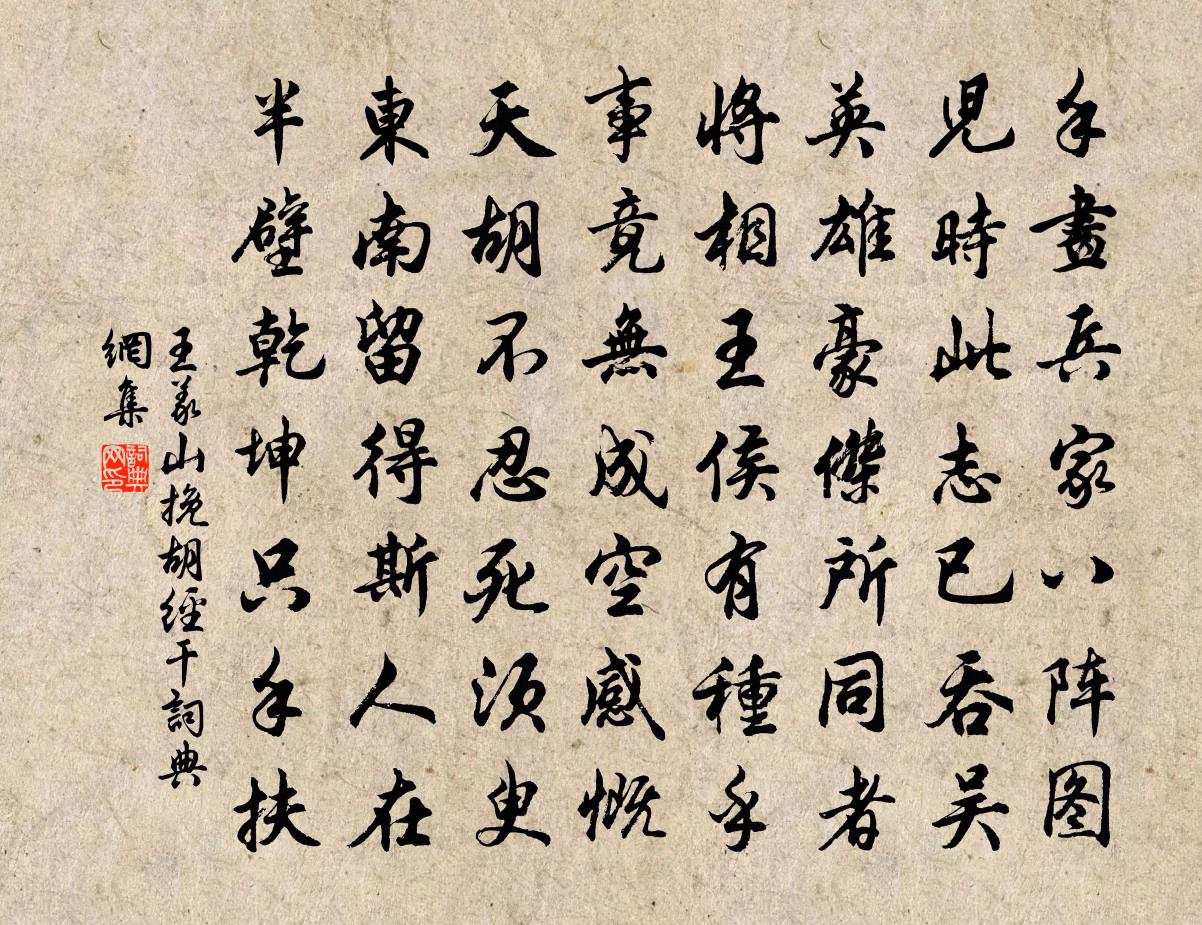 手畫兵家八阵图
児時此志已吞吴
英雄豪傑所同者
將相王侯有種乎
事竟無成空感慨
天胡不忍死須臾
東南留得斯人在
半壁乾坤只手扶
王義山挽胡經干詞典
網集
詞典
网印